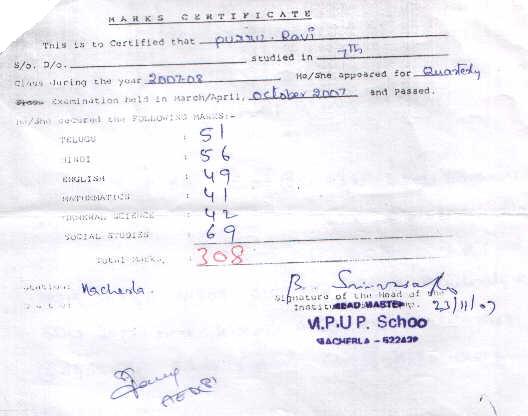 MARKS CERTIFICATE
This is to Certified that Ravi
S/o. D/o. studied in 7th
Class during the year 2007-08 He/She appeared for Quarterly
Examination held in March/April, October 2007 and Passed.
He/She secured the FOLLOWING MARKS:-
TELUGU : 51
HINDI : 56
ENGLISH : 49
MATHEMATICS : 41
GENERAL SCIENCE : 42
SOCIAL STUDIES : 69
Total Marks, : 308
Station: Macherla.
B. Srinivasa
Signature of the Head of the
Institution 23/11/07
HEAD MASTER
M.P.U.P. Schoo
MACHERLA - 522426